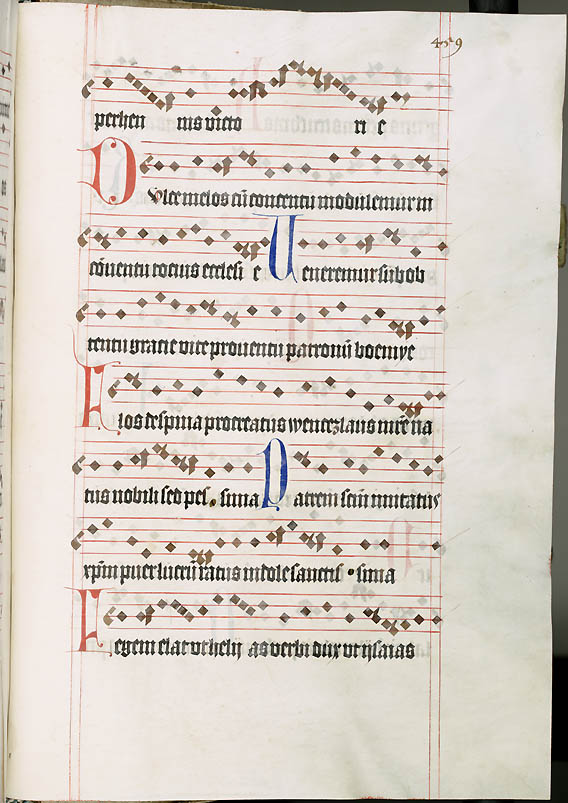 459
perhen nis victo ri e
Dulce melos cũ concentu modulemur in
cõventu tocius ecclesi e Veneremur sub ob
tentu gracie vite proventu patronũ boemye
Flos de spina procreatus wenczlaus
tus nobili sed pes sima Patrem scũ imitatus
xpm puer lucrũ ratus indole sanctis sima
legem elat ut hely as verbi dux ut ysaias